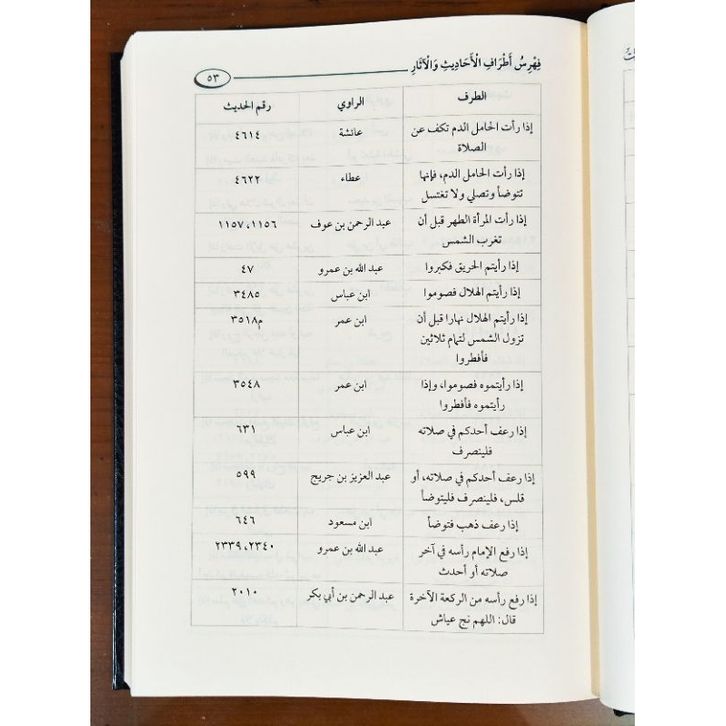 فِهْرِسُ أَطْرَافِ الْأَحَادِيثِ وَالْآثَارِ
٥٣
الطرف الراوي رقم الحديث
إذا رأت الحامل الدم تكف عن عائشة ٤٦١٤
الصلاة
إذا رأت الحامل الدم، فإنها عطاء ٤٦٢٢
تتوضأ وتصلي ولا تغتسل
إذا رأت المرأة الطهر قبل أن عبد الرحمن بن عوف ١١٥٦، ١١٥٧
تغرب الشمس
إذا رأيتم الحريق فكبروا عبد الله بن عمرو ٤٧
إذا رأيتم الهلال فصوموا ابن عباس ٣٤٨٥
إذا رأيتم الهلال نهارا قبل أن ابن عمر ٣٥١٨م
تزول الشمس لتمام ثلاثين
فأفطروا
إذا رأيتموه فصوموا، وإذا ابن عمر ٣٥٤٨
رأيتموه فأفطروا
إذا رعف أحدكم في صلاته ابن عباس ٦٣١
فلينصرف
إذا رعف أحدكم في صلاته، أو عبد العزيز بن جريج ٥٩٩
قلس، فلينصرف فليتوضأ
إذا رعف ذهب فتوضأ ابن مسعود ٦٤٦
إذا رفع الإمام رأسه في آخر عبد الله بن عمرو ٢٣٤٠، ٢٣٣٩
صلاته أو أحدث
إذا رفع رأسه من الركعة الآخرة عبد الرحمن بن أبي بكر ٢٠١٠
قال: اللهم نج عياش